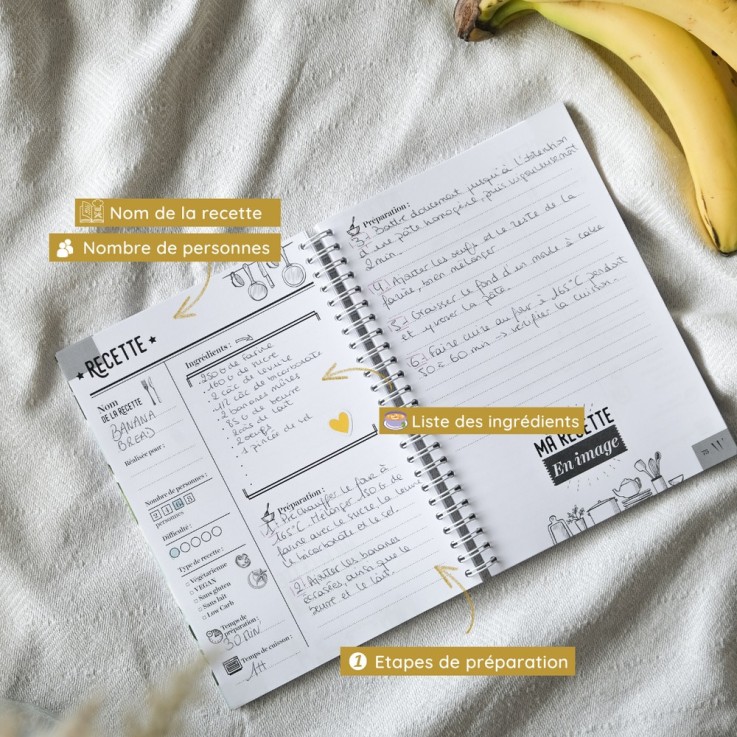 Nom de la recette
Nombre de personnes
★ RECETTE ★
Nom
DE LA RECETTE
BANANA
BREAD
Réalisée pour :
Nombre de personnes :
personnes
Difficulté :
Type de recette :
Végétarienne
VEGAN
Sans gluten
Sans lait
Low Carb
Temps de
préparation :
30 MIN
Temps de cuisson :
1H
Ingrédients :
. 250 G de farine
. 160 G de sucre
. 2 càc de levure
. 1/2 càc de bicarbonate
. 2 bananes mûres
. 85 G de beurre
. de lait
. 2 oeufs
. 1 pincée de sel
Liste des ingrédients
Préparation :
1. Préchauffer le four à
165°C. Mélanger 150 G de
farine avec le sucre, la levure
le bicarbonate et le sel.
2. Ajouter les bananes
écrasées, ainsi que le
beurre et le lait.
1 Etapes de préparation
Préparation :
3. Battre doucement jusqu'à l'obtention
d'une pâte homogène, puis vigoureusement
2 min.
4. Ajouter les oeufs et le reste de la
farine, bien mélanger
5. Graisser le fond d'un moule à cake
et y verser la pâte.
6. Faire cuire au four à 165°C pendant
50 à 60 min → vérifier la cuisson.
MA RECETTE
En image
11